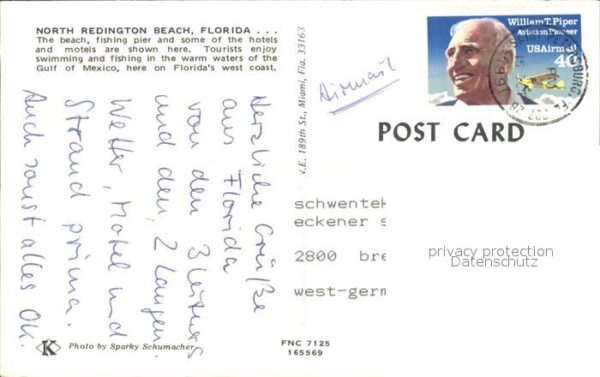 NORTH REDINGTON BEACH, FLORIDA . . .
The beach, fishing pier and some of the hotels
and motels are shown here. Tourists enjoy
swimming and fishing in the warm waters of the
Gulf of Mexico, here on Florida's west coast.
Herzliche Grüße
aus Florida
von den 3
und den 2 Langen.
Wetter, Motel und
Strand prima.
Auch sonst alles OK.
N.E. 189th St., Miami, Fla. 33163
Airmail
William T. Piper
Aviation Pioneer
USAirmail
40
POST CARD
eckener s
2800 bre
west-germ
privacy protection
Datenschutz
K
Photo by Sparky Schumacher
FNC 7125
165569